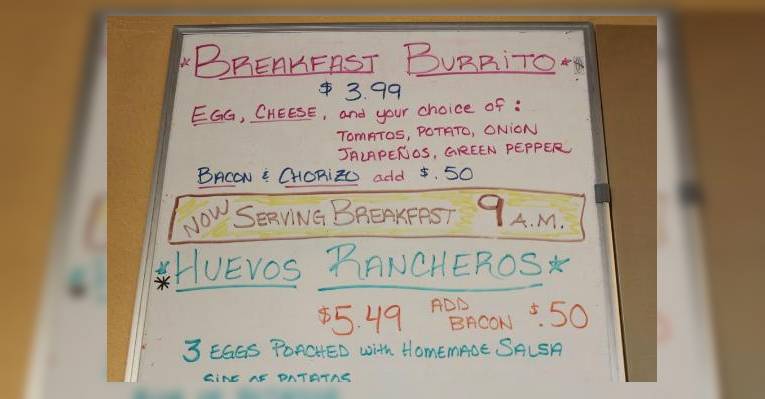 *BREAKFAST BURRITO**
$3.99
EGG, CHEESE, and your choice of:
TOMATOS, POTATO, ONION
JALAPEÑOS, GREEN PEPPER
BACON & CHORIZO add $.50
NOW SERVING BREAKFAST 9 A.M.
*HUEVOS RANCHEROS*
*
$5.49 ADD BACON $.50
3 EGGS POACHED with HOMEMADE SALSA
SIDE OF POTATOS